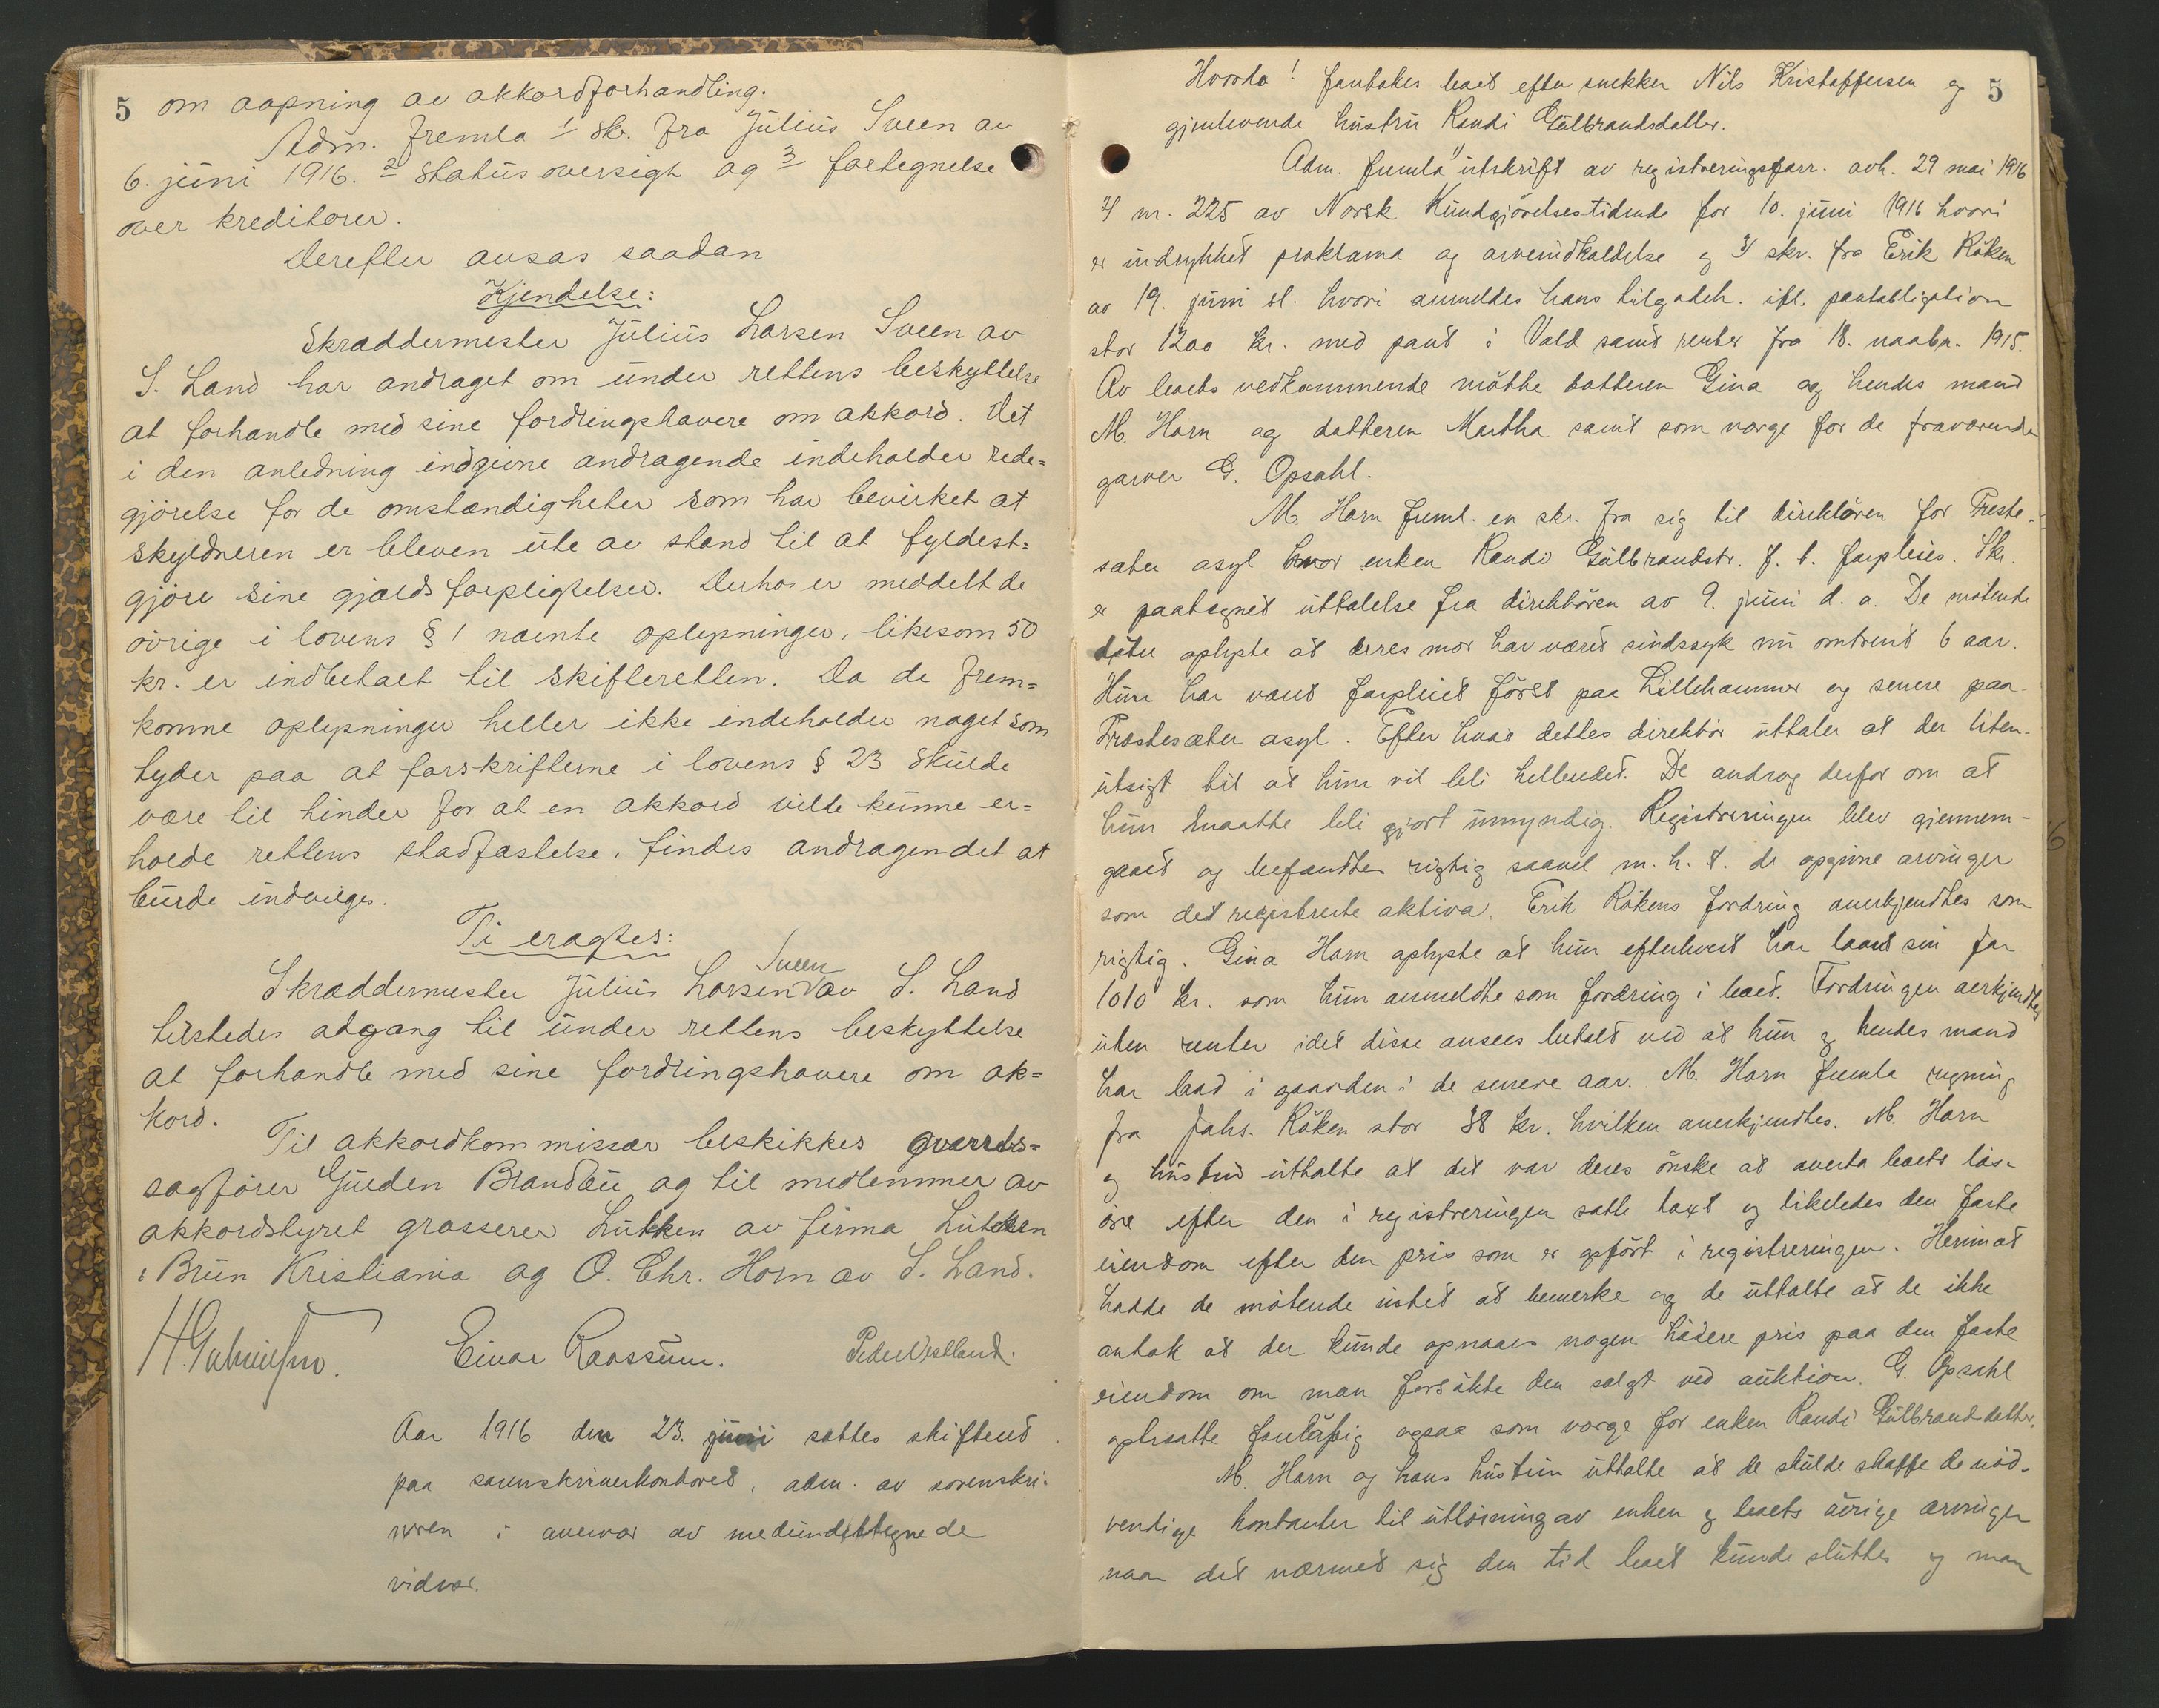 5 om aapning av akkordforhandling.
Adm. fremla 1/ skr. fra Julius Sveen av
6. juni 1916. 2/ Status oversigt og 3/ fortegnelse
over kreditorer.
Derefter avsas saadan
Kjendelse:
Skræddermester Julius Larsen Sveen av
S. Land har andraget om under rettens beskyttelse
at forhandle med sine fordringshavere om akkord. Det
i den anledning indgivne andragende indeholder rede=
gjörelse for de omstændigheter som har bevirket at
skyldneren er bleven ute av stand til at fyldest=
gjöre sine gjælds forpligtelser. Derhos er meddelt de
övrige i lovens § 1 nævnte oplysninger, likesom 50
kr. er indbetalt til skifteretten. Da de frem=
komne oplysninger heller ikke indeholder noget som
tyder paa at forskrifterne i lovens § 23 skulde
være til hinder for at en akkord vilde kunne er=
holde rettens stadfæstelse, findes andragendet at
burde indvilges.
Ti eragtes:
Skræddermester Julius Larsen Sveen av S. Land
tilstedes adgang til under rettens beskyttelse
at forhandle med sine fordringshavere om ak=
kord.
Til akkordkommissær beskikkes overrets=
sagförer Gulden Brandbu og til medlemmer av
akkordstyret grosserer Lutken av firma Lutken
& Brun Kristiania og O. Chr. Horn av S. Land.
Einar Raassum. Peder Vestland.
Aar 1916 den 23. juni sattes skifteret
paa sorenskriverkontoret, adm. av sorenskri-
veren i overvær av medundertegnede
vidner.
Hvorda! foretokes boet efter snekker Nils Kristoffersen og 5
gjenlevende hustru Randi Gulbrandsdatter.
Adm. fremla 1/ utskrift av registreringsforr. avh. 29 mai 1916
2/ nr. 225 av Norsk Kundgjörelsestidende for 10. juni 1916 hvori
er indrykket proklama og arveindkaldelse og 3/ skr. fra Erik Röken
av 19. juni sl. hvori anmeldes hans tilgodeh. ifl. pantobligation
stor 1200 kr. med pant i Vold samt renter fra 18. novbr. 1915.
Av boets vedkommende mötte datteren Gina og hendes mand
M. Horn og datteren Martha samt som værge for de fraværende
garver G. Opsahl.
M. Horn freml. en skr. fra sig til direktören for Preste-
sæter asyl hvor enken Randi Gulbrandstr. f. t. forpleies. Skr.
er paategnet uttalelse fra direktören av 9. juni d. a. De mötende
dötre oplyste at deres mor har været sindssyk nu omtrent 6 aar.
Hun har været forpleiet först paa Lillehammer og senere paa
Prestesæter asyl. Efter hvad dettes direktör uttaler at der liten
utsigt til at hun vil bli helbredet. De androg derfor om at
hun maatte bli gjort umyndig. Registreringen blev gjennem-
gaaet og befandtes rigtig saavel m. h. t. de opgivne arvinger
som det registrerte aktiva. Erik Rökens fordring anerkjendtes som
rigtig. Gina Horn oplyste at hun efterhvert har laant sin far
1010 kr. som hun anmeldte som fordring i boet. Fordringen aerkjendtes
uten renter idet disse ansees betalt ved at hun og hendes mand
har bod i gaarden i de senere aar. M. Horn fremla regning
fra Johs. Röken stor 38 kr. hvilken anerkjendtes. M. Horn
og hustru uttalte at det var deres önske at overta boets lös-
öre efter den i registreringen satte taxt og likeledes den faste
eiendom efter den pris som er opfört i registreringen. Herimot
hadde de mötende intet at bemerke og de uttalte at de ikke
antok at der kunde opnaaes nogen höiere pris paa den faste
eiendom om man forsökte den solgt ved auktion. G. Opsahl
opksatte forelöbig ogsaa som værge for enken Randi Gulbrandsdatter.
M. Horn og hans hustru uttalte at de skulde skaffe de nöd-
vendige kontanter til utlösning av enken og boets övrige arvinger
naar det nærmet sig den tid boet kunde sluttes og man